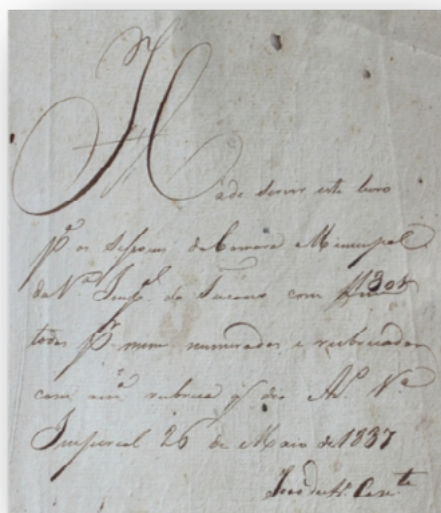 Hade servir este livro
pª as Sessoens da Camara Municipal
da Vª Impᵉˡ de Tucano com
todas pʳ mim numeradas e rubricadas
com mª rubrica q̃ diz Vª
Imperial 26 de Maio de 1837
João